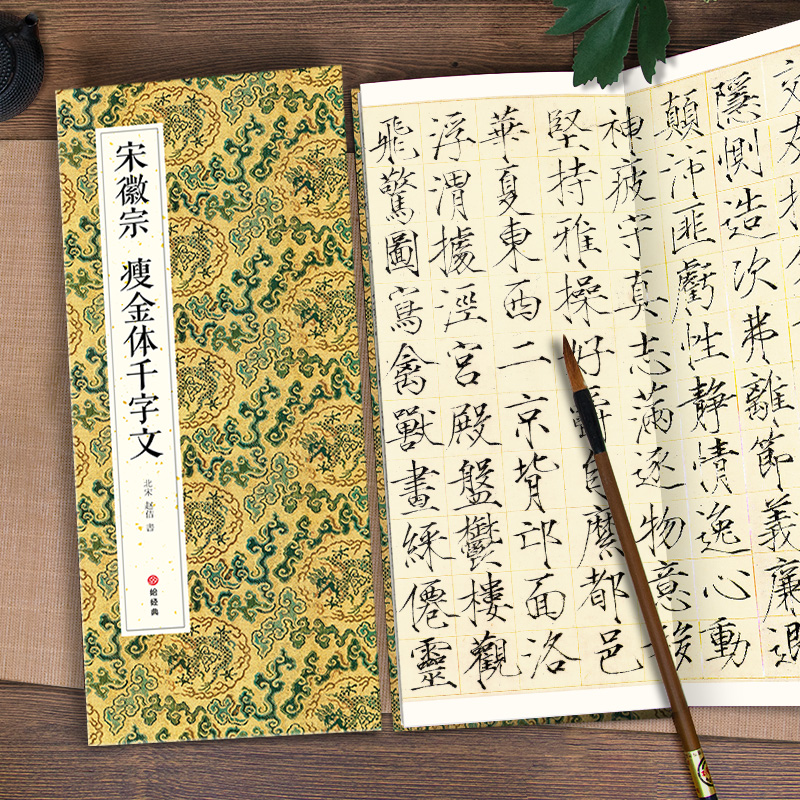 宋徽宗 瘦金体千字文
北宋 赵佶 書
经典
交友
隱惻造次弗離節義廉退
顛沛匪虧性靜情逸心動
神疲守真志滿逐物意移
堅持雅操好爵自縻都邑
華夏東西二京背邙面洛
浮渭據涇宮殿盤鬱樓觀
飛驚圖寫禽獸畫綵僊靈